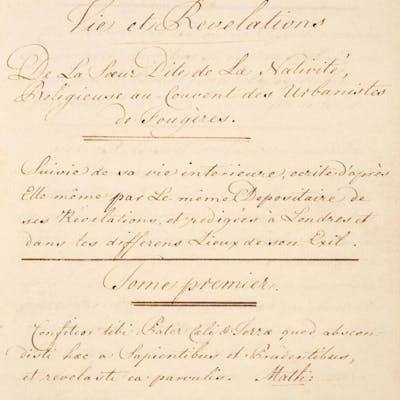 Vie et Revelations
De La Sœur Dite de La Nativité,
Religieuse au Couvent des Urbanistes
de Fougères.
Suivie de sa vie interieure, ecrite d'après
Elle même par Le même Depositaire de
ses Révelations, et redigées à Londres et
dans les differens Lieux de son Exil.
Tome premier.
Confiteor tibi Pater Cœli & Terræ quod abscon-
disti hæc a Sapientibus et Prudentibus,
et revelasti ea parvulis. Math: